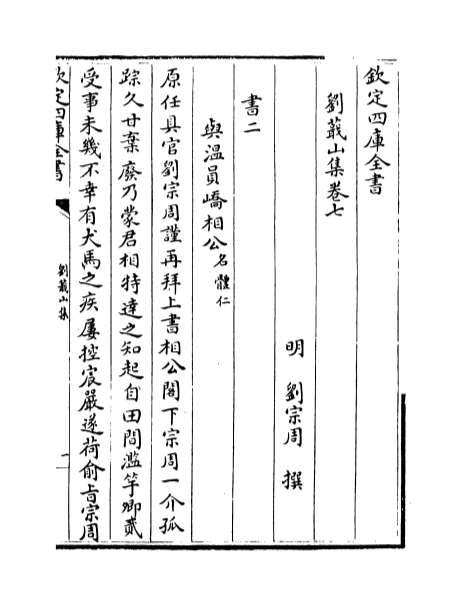 欽定四庫全書
劉蕺山集卷七
明　劉宗周　撰
書二
與溫員嶠相公名體仁
原任具官劉宗周謹再拜上書相公閣下宗周一介孤
踪久甘棄廢乃蒙君相特達之知起自田間濫竽卿貳
受事未幾不幸有犬馬之疾屢控宸嚴遂荷俞旨宗周
欽定四庫全書
劉蕺山集
一